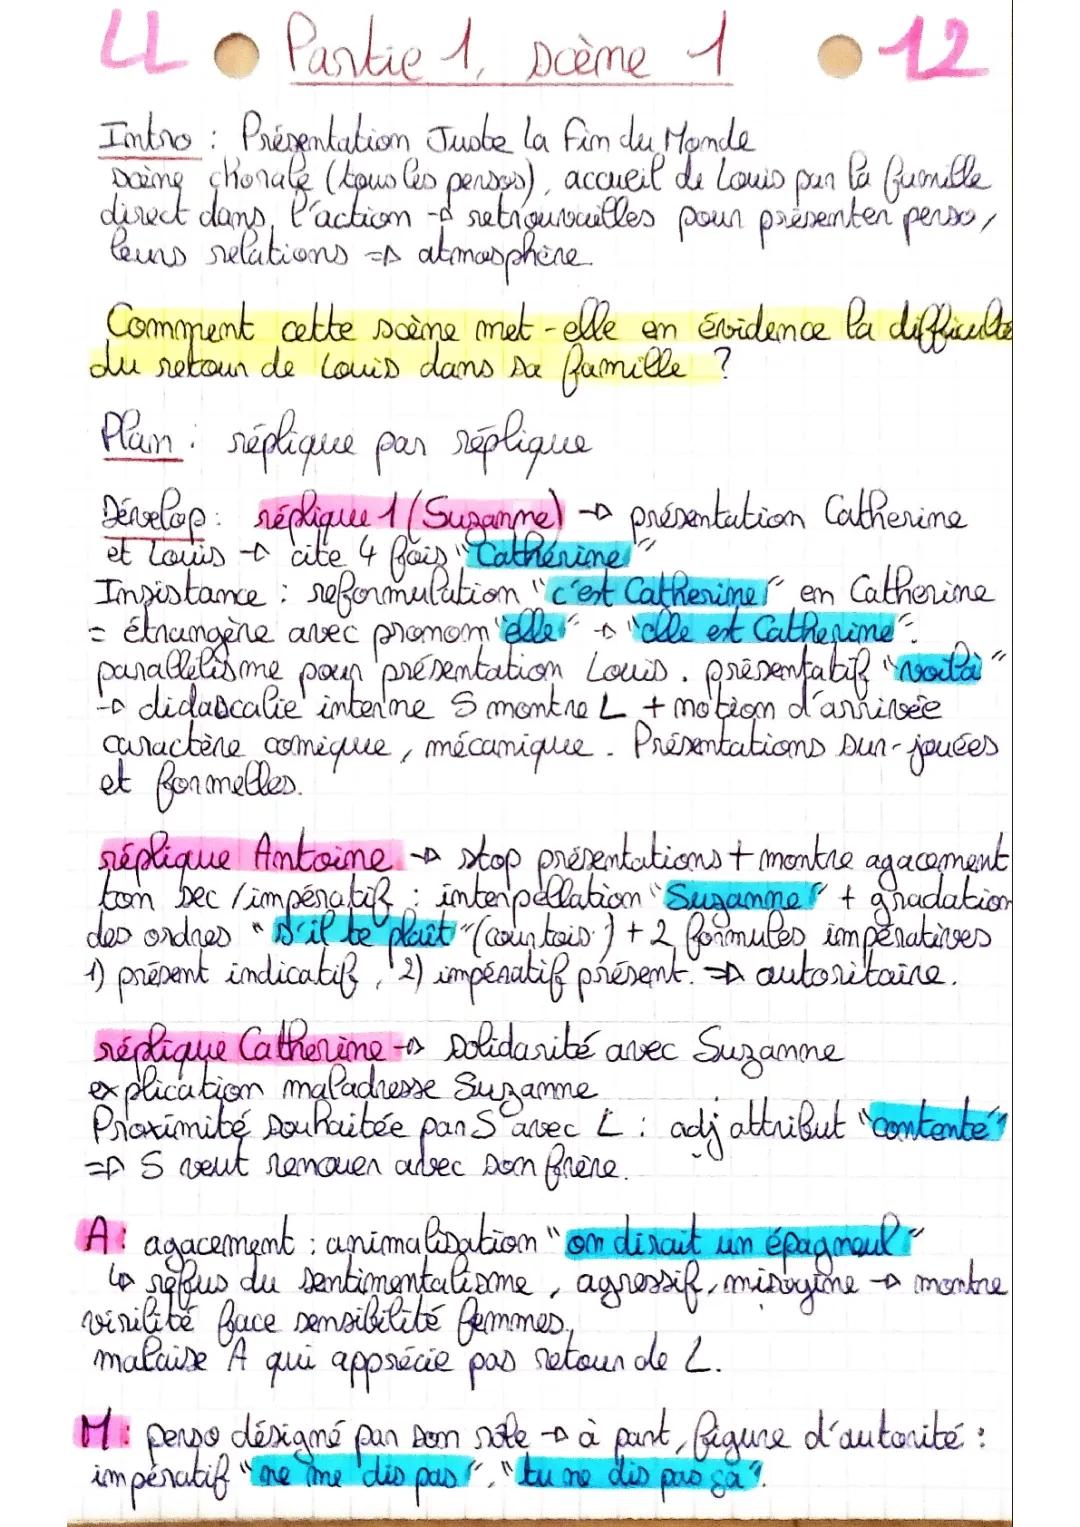 LL Partie 1, scène 1 12
Intro : Présentation Juste la Fin du Monde
scène chorale (tous les persos), accueil de Louis par la famille
direct dans l'action → retrouvailles pour présenter perso,
leurs relations => atmosphère
Comment cette scène met-elle en évidence la difficulté
du retour de Louis dans sa famille ?
Plan : réplique par réplique
Dévelop : réplique 1 (Suzanne) → présentation Catherine
et Louis → cite 4 fois "Catherine"
Insistance : reformulation "c'est Catherine" en Catherine
= étrangère avec pronom "elle" → "elle est Catherine".
parallélisme pour présentation Louis. présentatif "voilà"
→ didascalie interne S montre L + motion d'arrivée
caractère comique, mécanique. Présentations sur-jouées
et formelles.
réplique Antoine → stop présentations + montre agacement
ton sec / impératif : interpellation "Suzanne" + gradation
des ordres "s'il te plaît" (courtois) + 2 formules impératives
1) présent indicatif, 2) impératif présent. => autoritaire.
réplique Catherine → solidarité avec Suzanne
explication maladresse Suzanne
Proximité souhaitée par S avec L : adj attribut "contente"
=> S veut renouer avec son frère.
A : agacement : animalisation "on dirait un épagneul"
↳ refus du sentimentalisme, agressif, misogine → montre
virilité face sensibilité femmes,
malaise A qui apprécie pas retour de L.
M : perso désigné par son rôle → à part, figure d'autorité :
impératif "ne me dis pas", "tu ne dis pas ça".